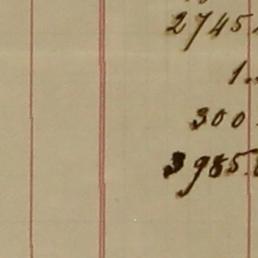 2745.
1.
300
3985.